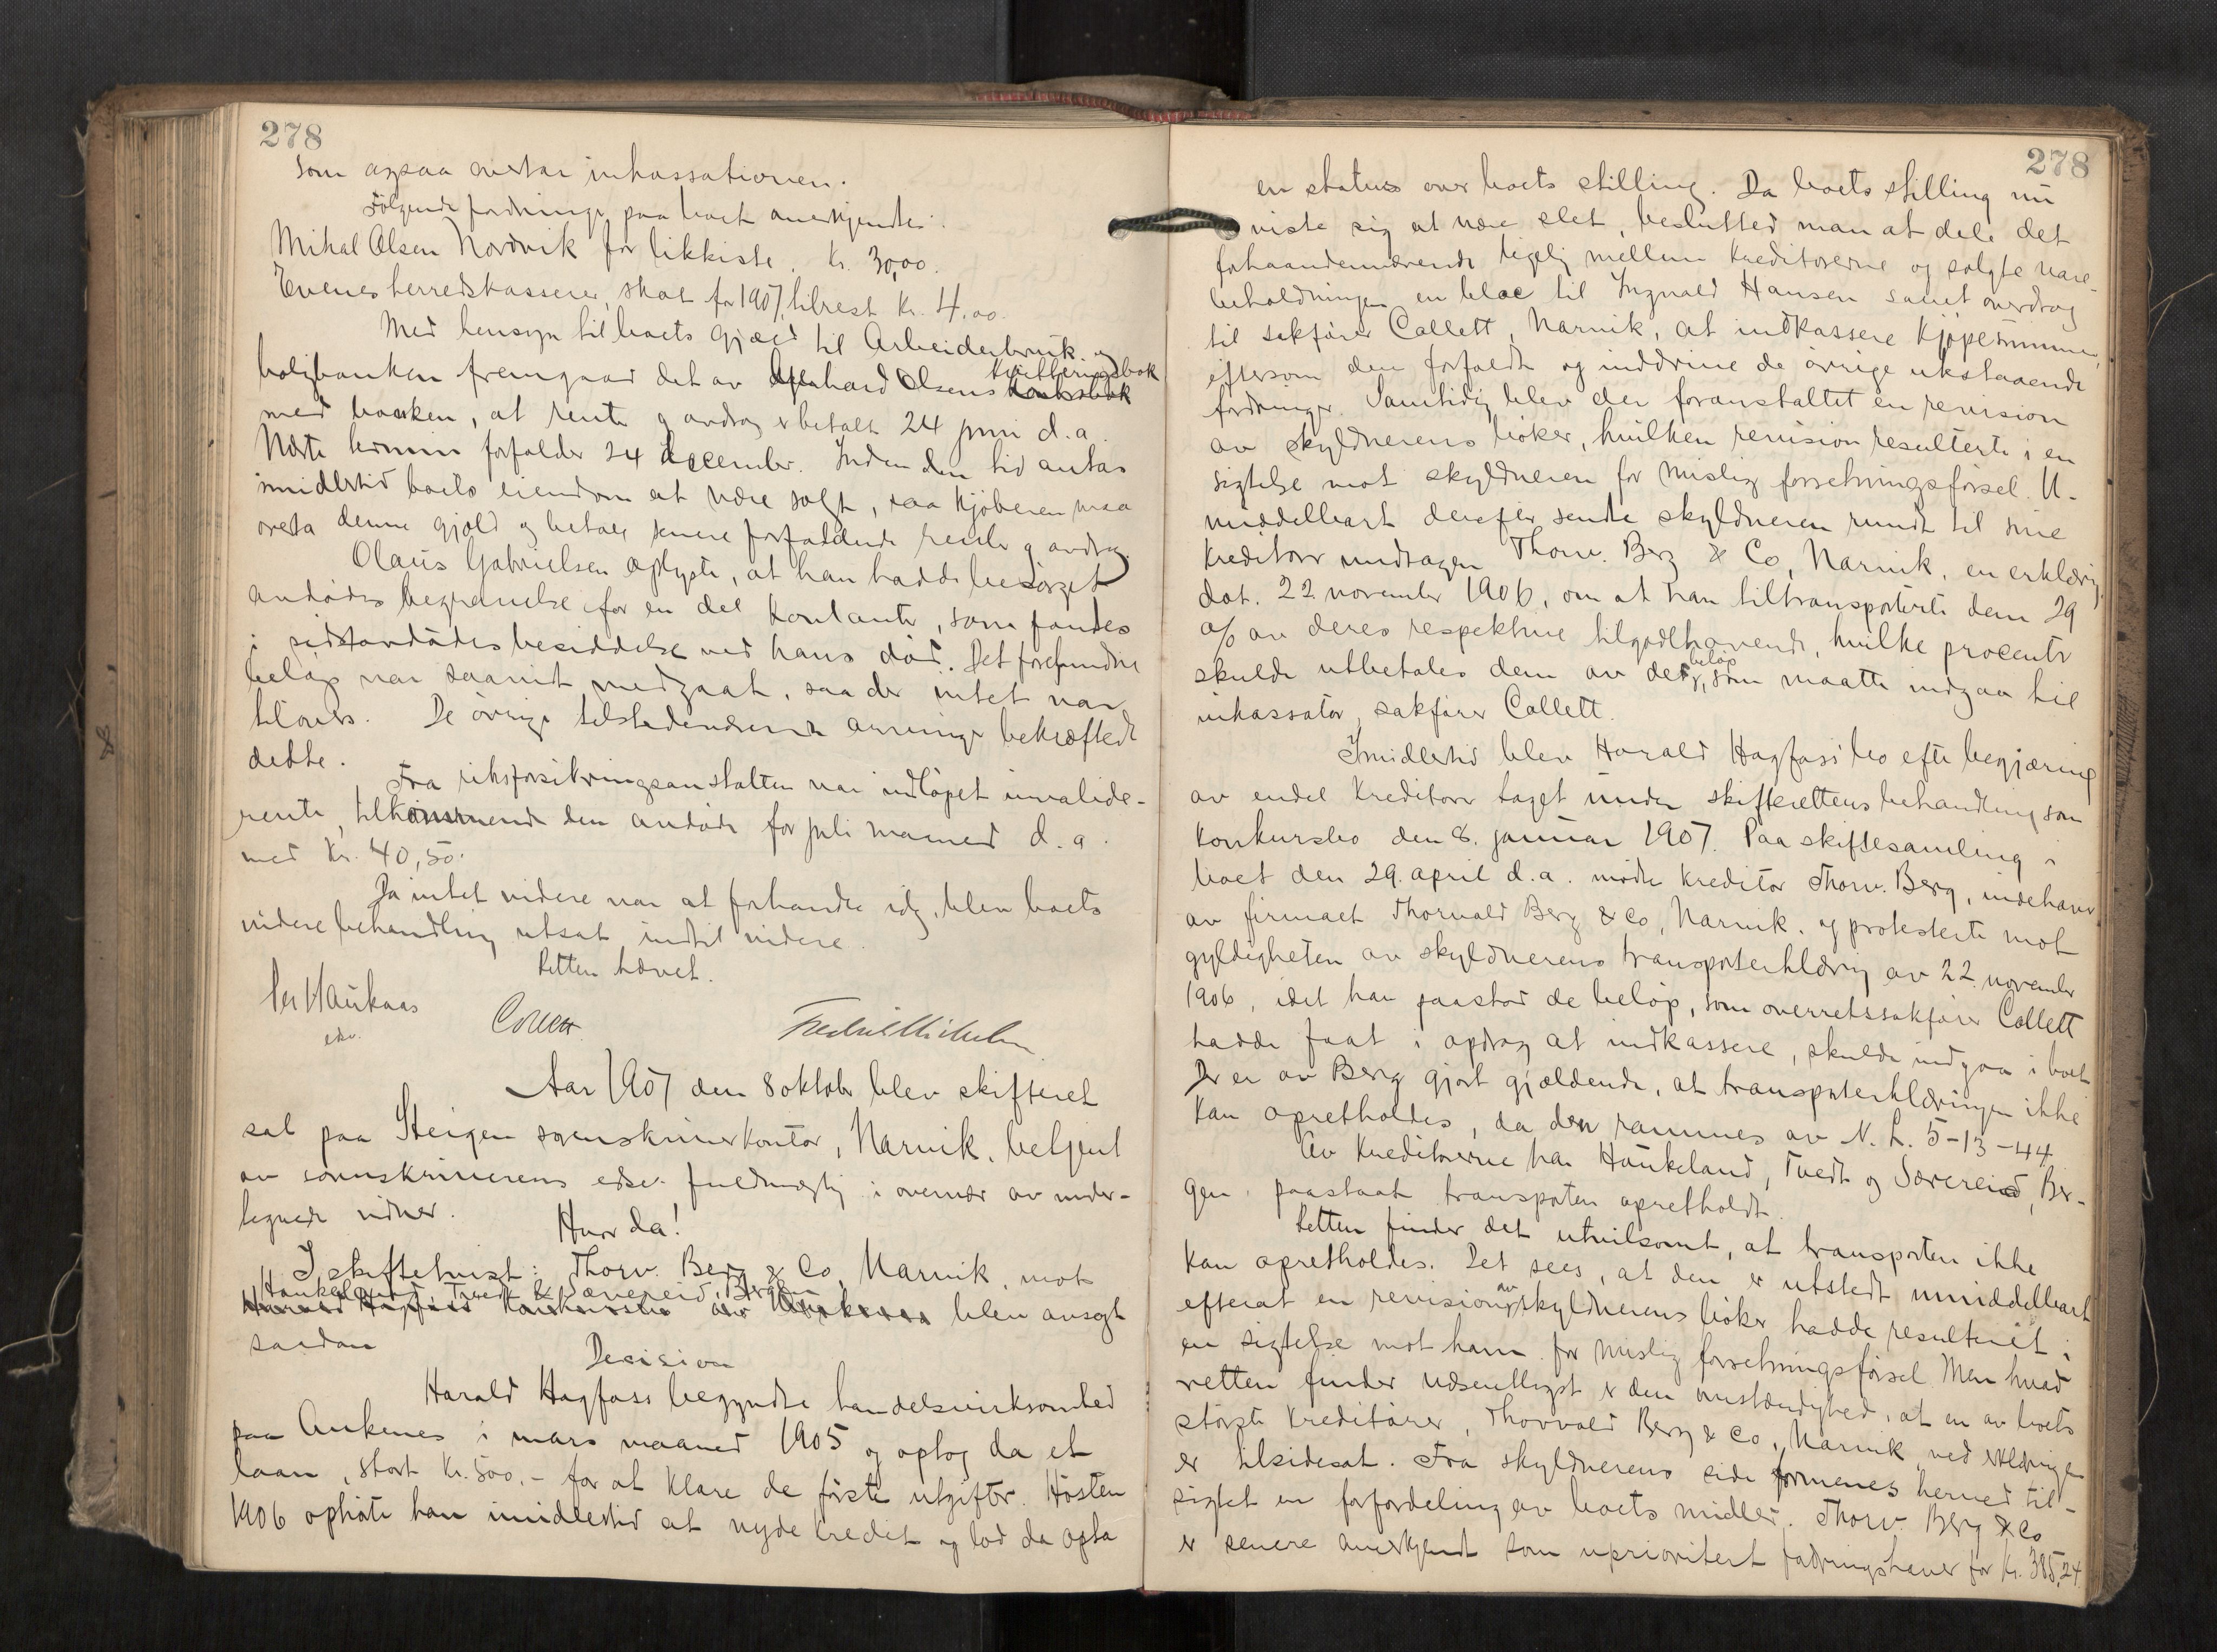 278
som ogsaa overtar inkassationen.
Følgende fordringer paa boet anerkjendtes:
Mikal Olsen Nordvik for likkiste. Kr. 30,00.
Evenes herredskasserer, skat for 1907, tilrest Kr. 4,00.
Med hensyn til boets gjæld til Arbeiderbruk og
boligbanken fremgaar det av Olsens kvitteringsbok
med banken, at rente og avdrag er betalt 24 juni d.a.
Næste termin forfalder 24 december. Inden den tid antas
imidlertid boets eiendom at være solgt, saa kjøberen maa
overta denne gjæld og betale senere forfaldende rente og avdrag.
Olaus Gabrielsen oplyste, at han hadde besørget
avdødes begravelse for en del kontanter, som fandtes
i sidstavdødes besiddelse ved hans død. Det forefundne
beløp var saavidt medgaat, saa der intet var
tilovers. De øvrige tilstedeværende arvinger bekræftede
dette.
Fra riksforsikringsanstalten var indløpet invalide-
rente, tilkommende den avdøde for juli maaned d.a.
med Kr. 40,50.
Da intet videre var at forhandle idag, blev boets
videre behandling utsat indtil videre.
Retten hævet.
Per Haukaas
edsv.
Collett
Fredrik Mikkelsen
Aar 1907 den 8 oktober blev skifteret
sat paa Steigen sorenskriverkontor, Narvik, betjent
av sorenskriverens edsv. fuldmægtig i overvær av under-
tegnede vidner.
Hvor da!
I skiftetvist: Thorv. Berg & Co, Narvik, mot
Haukeland, Tvedt & Særvereid, Bergen
blev avsagt
saadan
Decision
Harald Hagfass begyndte handelsvirksomhed
paa Ankenes i mars maaned 1905 og optog da et
laan, stort Kr. 500,- for at klare de første utgifter. Høsten
1906 ophørte han imidlertid at nyde kredit og lod da opta
278
en status over boets stilling. Da boets stilling nu
viste sig at være slet, beslutted man at dele det
forhaandenværende ligelig mellem kreditorerne og solgte vare-
beholdningen en bloc til Ingvald Hansen samt overdrog
til sakfører Collett, Narvik, at indkassere kjøpesummen,
eftersom den forfaldt og inddrive de øvrige utestaaende
fordringer. Samtidig blev der foranstaltet en revision
av skyldnerens bøker, hvilken revision resulterte i en
sigtelse mot skyldneren for mislig forretningsførsel. U-
middelbart derefter sendte skyldneren rundt til sine
kreditorer undtagen Thorv. Berg & Co, Narvik, en erklæring,
dat. 22 november 1906, om at han tiltransporterte dem 29
o/o av deres respektive tilgodehavende, hvilke procenter
skulde utbetales dem av det beløp, som maatte indgaa til
inkassator, sakfører Collett.
Imidlertid blev Harald Hagfass' bo efter begjæring
av endel kreditorer taget under skifterettens behandling som
konkursbo den 8. januar 1907. Paa skiftesamling i
boet den 29. april d.a. møtte kreditor Thorv. Berg, indehaver
av firmaet Thorvald Berg & Co, Narvik, og protesterte mot
gyldigheten av skyldnerens transporterklæring av 22. november
1906, idet han paastod de beløp, som overretssakfører Collett
hadde faat i opdrag at indkassere, skulde indgaa i boet
Der er av Berg gjort gjældende, at transporterklæringen ikke
kan opretholdes, da den rammes av N. L. 5-13-44
Av kreditorerne har Haukeland, Tvedt og Særvereid, Ber-
gen, paastaat transporten opretholdt.
Retten finder det utvilsomt, at transporten ikke
kan opretholdes. Det sees, at den er utstedt umiddelbart
efterat en revision av skyldnerens bøker hadde resulteret i
en sigtelse mot ham for mislig forretningsførsel. Men hvad
retten finder væsentligst er den omstændighed, at en av boets
største kreditorer, Thorvald Berg & Co., Narvik ved erklæringen
er tilsidesat. Fra skyldnerens side formenes herved til-
sigtet en forfordeling av boets midler. Thorv. Berg & Co
er senere anerkjendt som uprioritert fordringshaver for Kr. 385,24